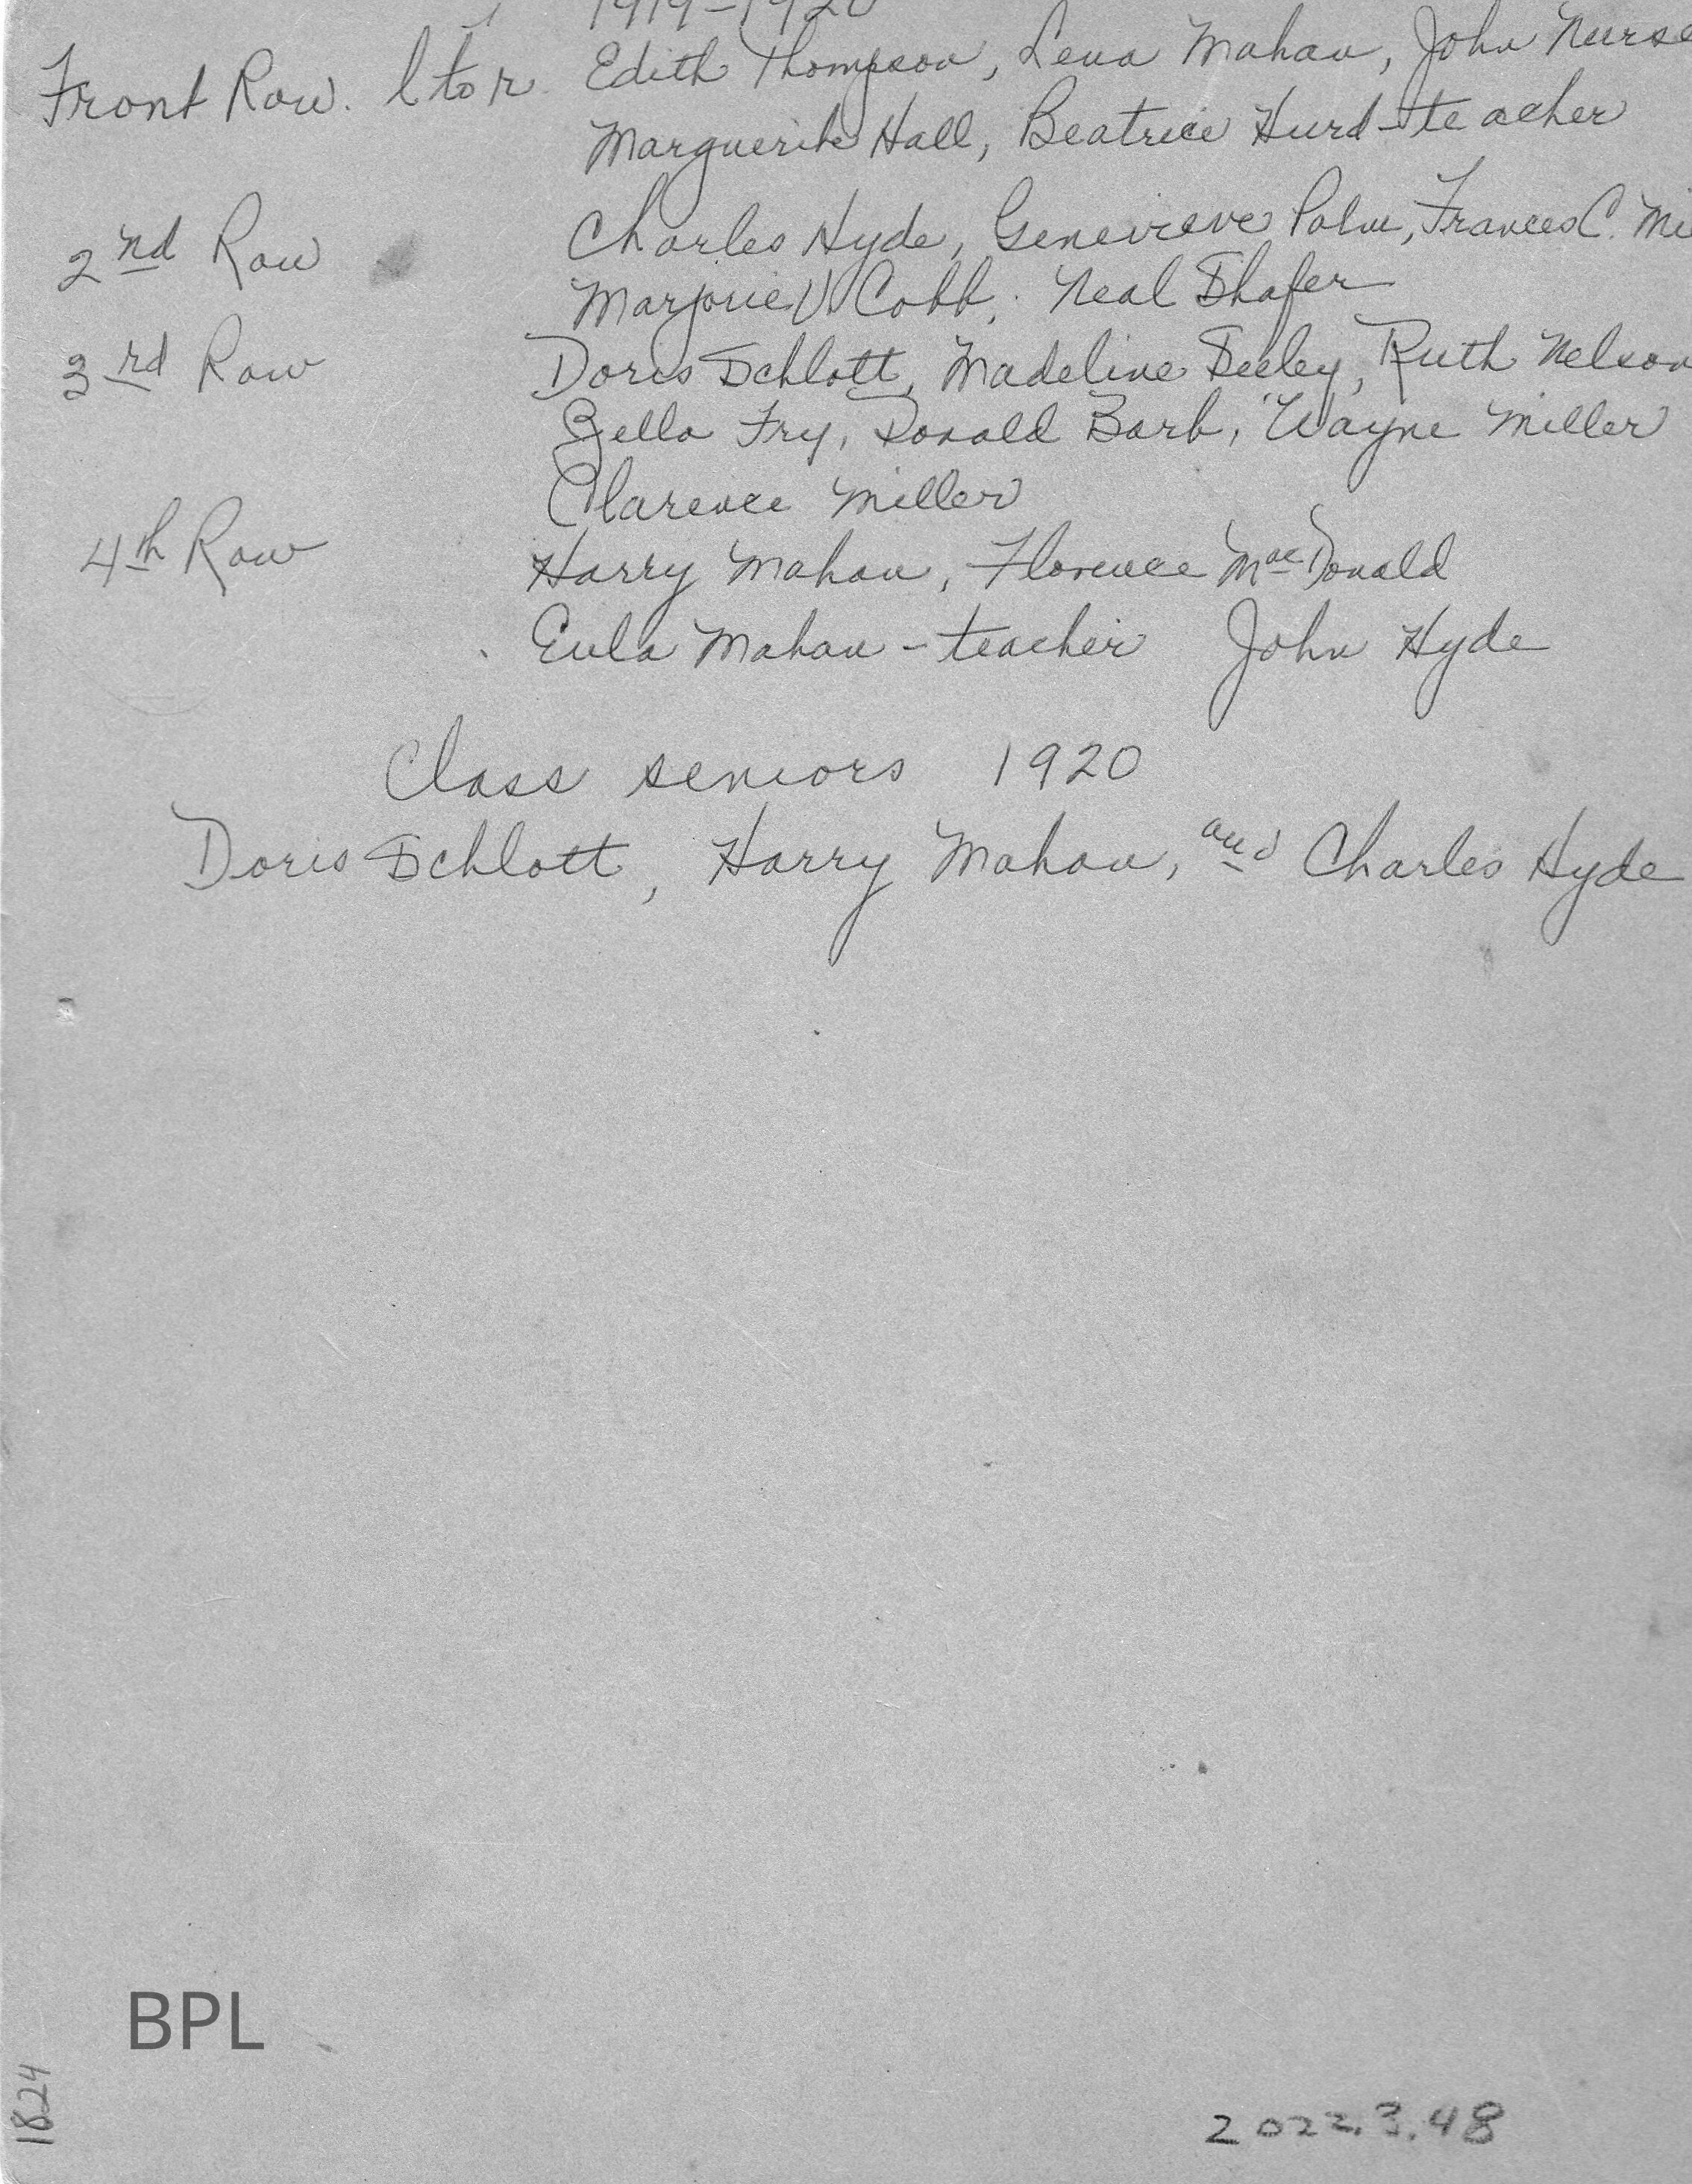 1919-1920
Front Row. l to r. Edith Thompson, Lena Mahan, John Nurse
Marguerite Hall, Beatrice Hurd-teacher
2nd Row Charles Hyde, Genevieve Palm, Frances C. Mi
Marjorie V. Cobb, Neal Shafer
3rd Row Doris Schlott, Madeline Seeley, Ruth Nelson
Zella Fry, Donald Barb, Wayne Miller
Clarence Miller
4th Row Harry Mahan, Florence MacDonald
Eula Mahan - teacher John Hyde
Class seniors 1920
Doris Schlott, Harry Mahan, and Charles Hyde
BPL
1824
2022.3.48